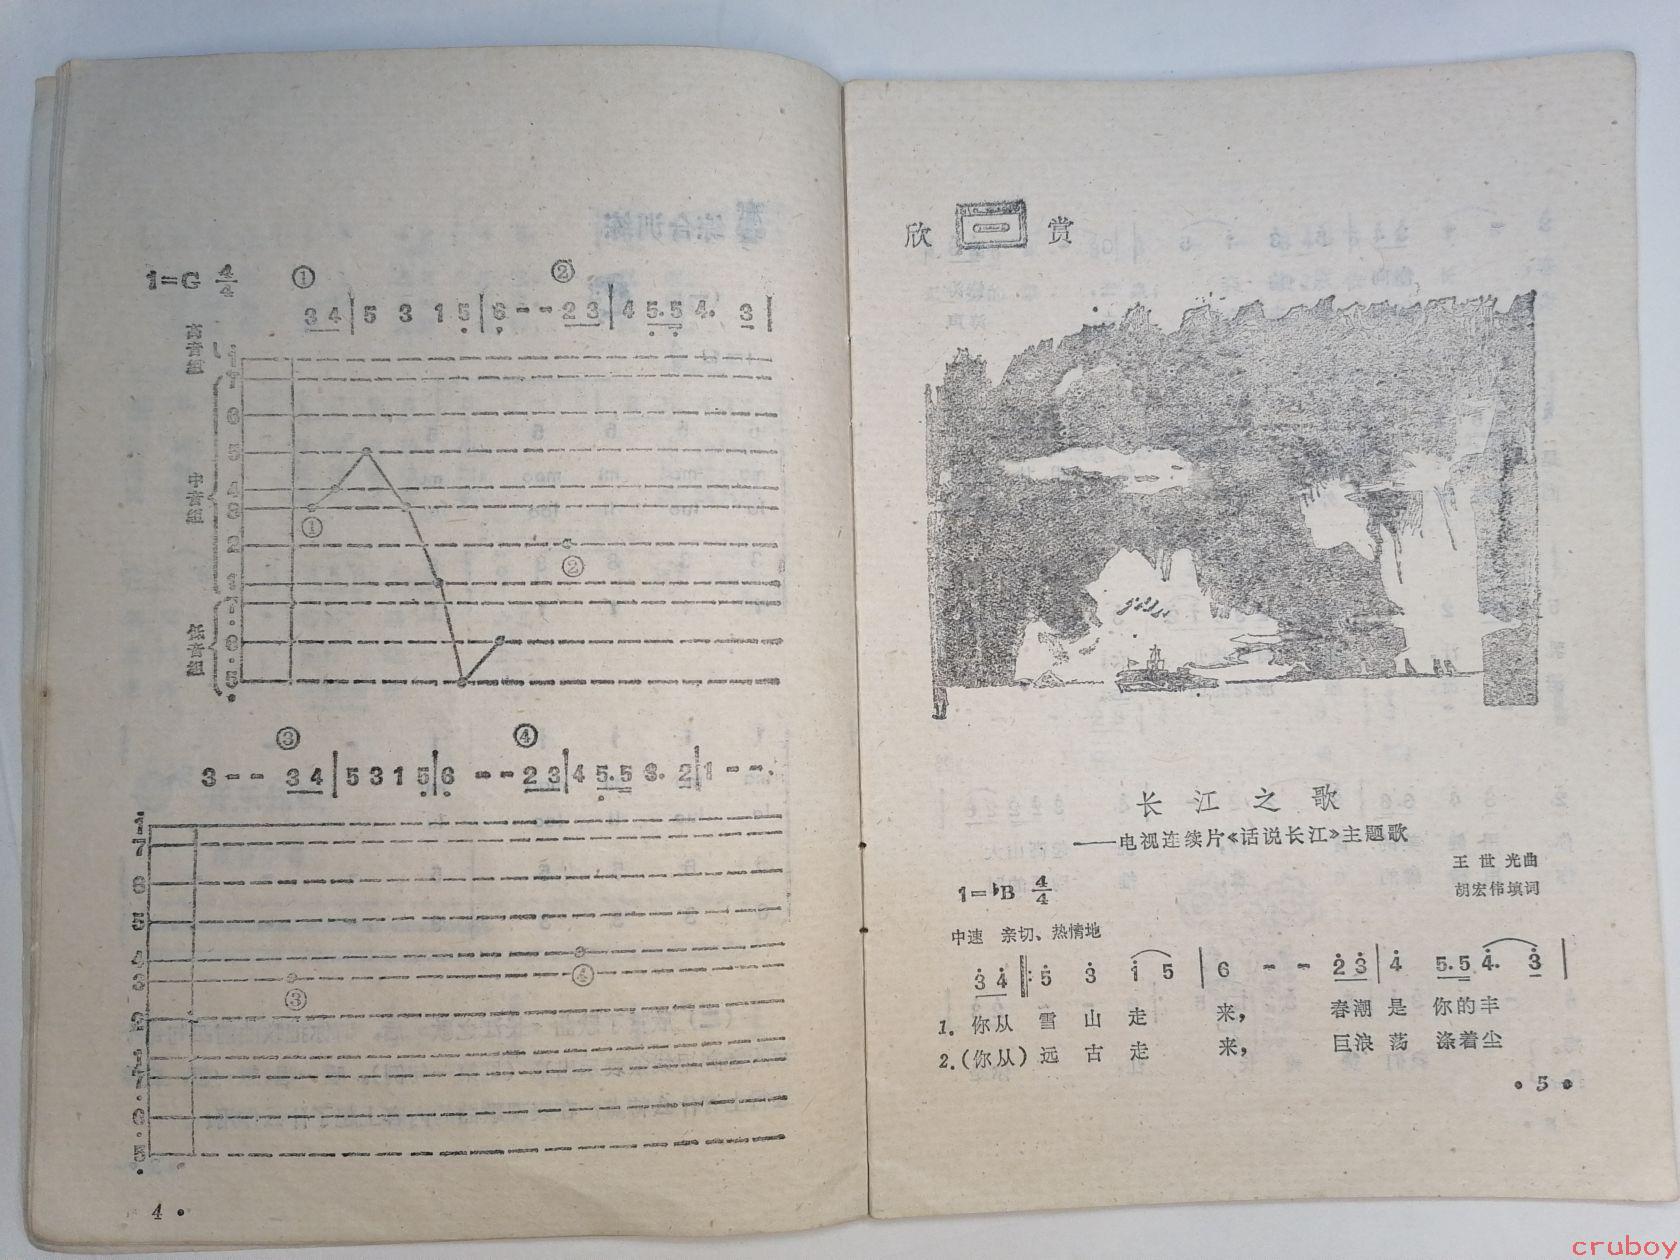 1=G 4/4
① ②
3 4 | 5 3 1 5 | 6 - - 2 3 | 4 5. 5 4. 3 |
高音组
中音组
低音组
i
7
6
5
4
3
2
1
7
6
5
①
②
③ ④
3 - - 3 4 | 5 3 1 5 | 6 - - 2 3 | 4 5. 5 3. 2 | 1 - -.
i
7
6
5
4
3
2
1
7
6
5
③
④
4 •
欣 赏
长 江 之 歌
——电视连续片《话说长江》主题歌
王 世 光曲
胡宏伟填词
1=♭B 4/4
中速 亲切、热情地
3 4 ‖: 5 3 i 5 | 6 - - 2 3 | 4 5. 5 4. 3 |
1. 你从 雪 山 走 来, 春潮 是 你的丰
2.(你从) 远 古 走 来, 巨浪 荡 涤着尘
• 5 •
cruboy